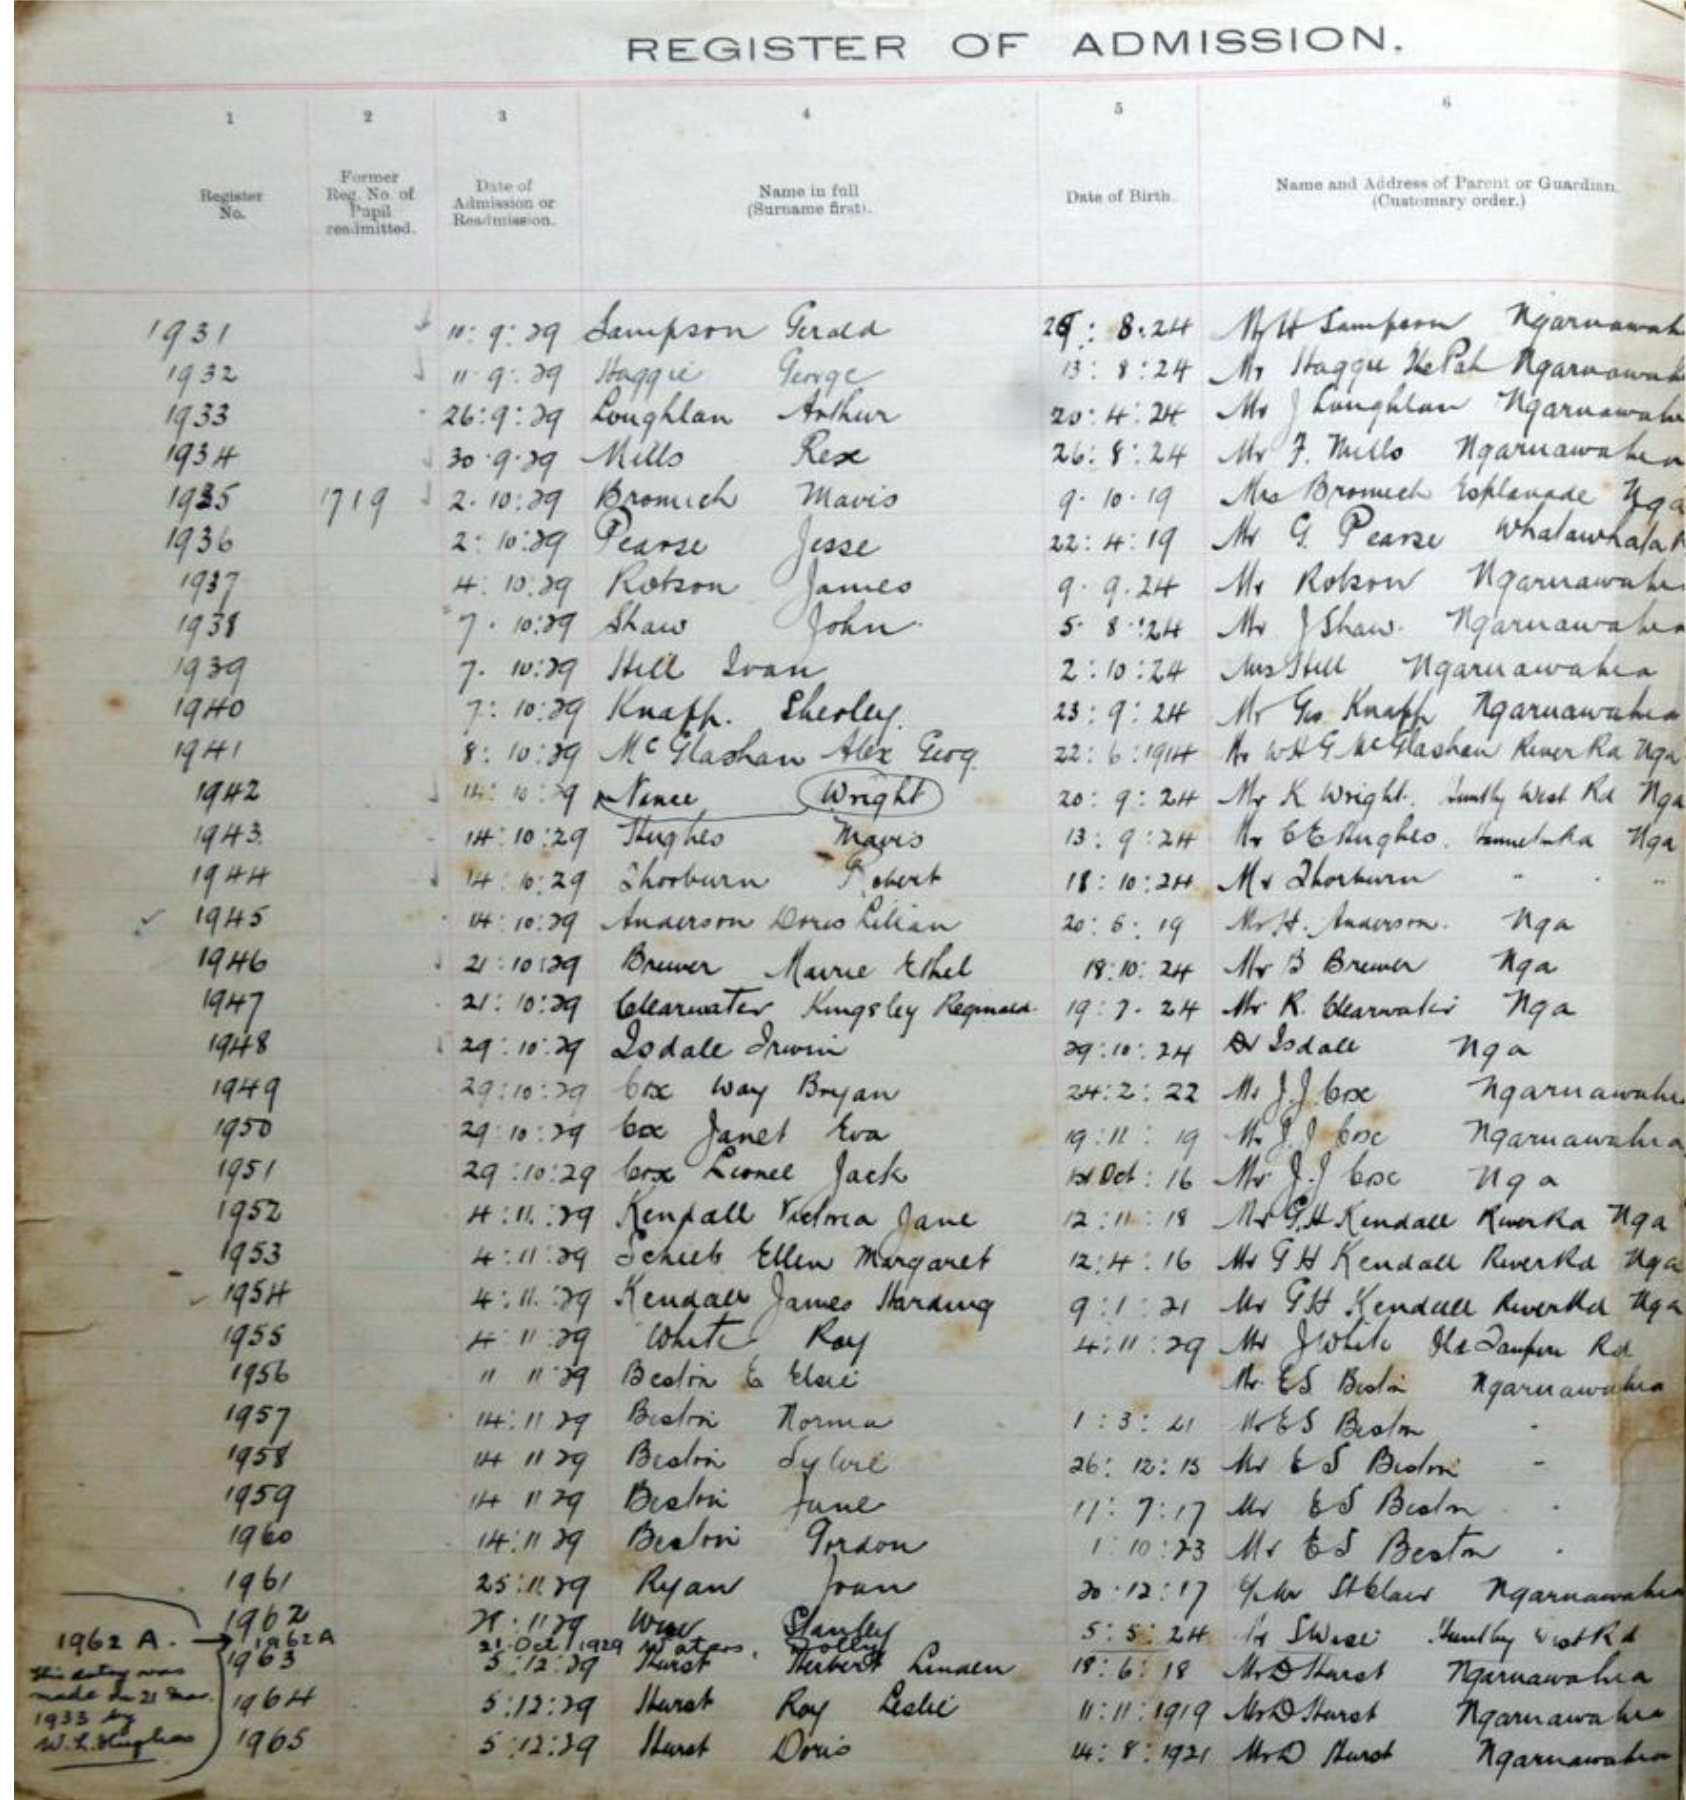 REGISTER OF ADMISSION.
1 2 3 4 5 6
Register No. Former Reg. No. of Pupil readmitted. Date of Admission or Readmission. Name in full (Surname first). Date of Birth. Name and Address of Parent or Guardian. (Customary order.)
1931 11: 9: 29 Sampson Gerald 8:24 Mr H Sampson Ngaruawah
1932 11 9: 29 Haggie George 13: 8: 24 Mr Haggie The Pah Ngaruawah
1933 26: 9: 29 Loughlan Arthur 20: 4: 24 Mr J Loughlan Ngaruawahi
1934 30 9 29 Mills Rex 26: 8: 24 Mr F. Mills Ngaruawahia
1935 1719 2. 10: 29 Bromich Mavis 9. 10. 19 Mrs Bromich Esplanade Nga
1936 2: 10: 29 Pearse Jesse 22: 4: 19 Mr G. Pearse Whatawhata R
1937 4: 10: 29 Robson James 9. 9. 24 Mr Robson Ngaruawahi
1938 7. 10: 29 Shaw John 5. 8: 24 Mr J Shaw. Ngaruawahia
1939 7. 10: 29 Hill Ivan 2: 10: 24 Mrs Hill Ngaruawahia
1940 7: 10: 29 Knapp. Sherley. 23: 9: 24 Mr Geo Knapp Ngaruawahia
1941 8: 10: 29 McGlashan Alex Georg. 22: 6: 1914 Mr W H G McGlashan River Rd Nga
1942 14: 10: 29 Nance Wright 20: 9: 24 Mr K Wright. Huntly West Rd Nga
1943. 14: 10: 29 Hughes Mavis 13: 9: 24 Mr C E Hughes. Nga
1944 14: 10: 29 Thorburn Robert 18: 10: 24 Mr Thorburn " " "
1945 14: 10: 29 Anderson Doris Lilian 20: 6: 19 Mr H. Anderson. Nga
1946 21: 10: 29 Brewer Maurie Ethel 18: 10: 24 Mr B Brewer Nga
1947 21: 10: 29 Clearwater Kingsley Reginald. 19: 7. 24 Mr R. Clearwater Nga
1948 29: 10: 29 Isdale Irwin 29: 10: 24 Dr Isdale Nga
1949 29: 10: 29 Cox Way Bryan 24: 2: 22 Mr J.J. Cox Ngaruawahi
1950 29: 10: 29 Cox Janet Eva 19: 11: 19 Mr J. J Cox Ngaruawahia
1951 29: 10: 29 Cox Lionel Jack Oct: 16 Mr J.J Cox Nga
1952 4: 11: 29 Kendall Victoria Jane 12: 11: 18 Mr G.H Kendall River Rd Nga
1953 4: 11: 29 Schieb Ellen Margaret 12: 4: 16 Mr G H Kendall River Rd Nga
1954 4: 11: 29 Kendall James Harding 9: 1: 21 Mr G H Kendall River Rd Nga
1955 4: 11: 29 White Roy 4: 11: 29 Mr J White Old Taupiri Rd
1956 11 11: 29 Beston E Elsie Mr E S Beston Ngaruawahia
1957 14: 11 29 Beston Norma 1: 3: 21 Mr E S Beston "
1958 14 11 29 Beston Sylvie 26: 12: 15 Mr E S Beston "
1959 14 11 29 Beston June 11: 7: 17 Mr E S Beston "
1960 14: 11 29 Beston Gordon 1: 10: 23 Mr E S Beston "
1961 25: 11 29 Ryan Joan 20. 12: 17 c/o Mr St Clair Ngaruawahia
1962 11 29 Wise Stanley 5: 5: 24 Mr S Wise Huntly West Rd
1962 A. → 1962A 21 Oct 1929 Waters, Dolly
1963 5: 12: 29 Hurst Herbert Linden 18: 6: 18 Mr D Hurst Ngaruawahia
1964 5: 12: 29 Hurst Roy Leslie 11: 11: 1919 Mr D Hurst Ngaruawahia
1965 5: 12: 29 Hurst Doris 14: 8: 1921 Mr D Hurst Ngaruawahia
This entry was
made on 21 Mar.
1933 by
W.L. Hughes